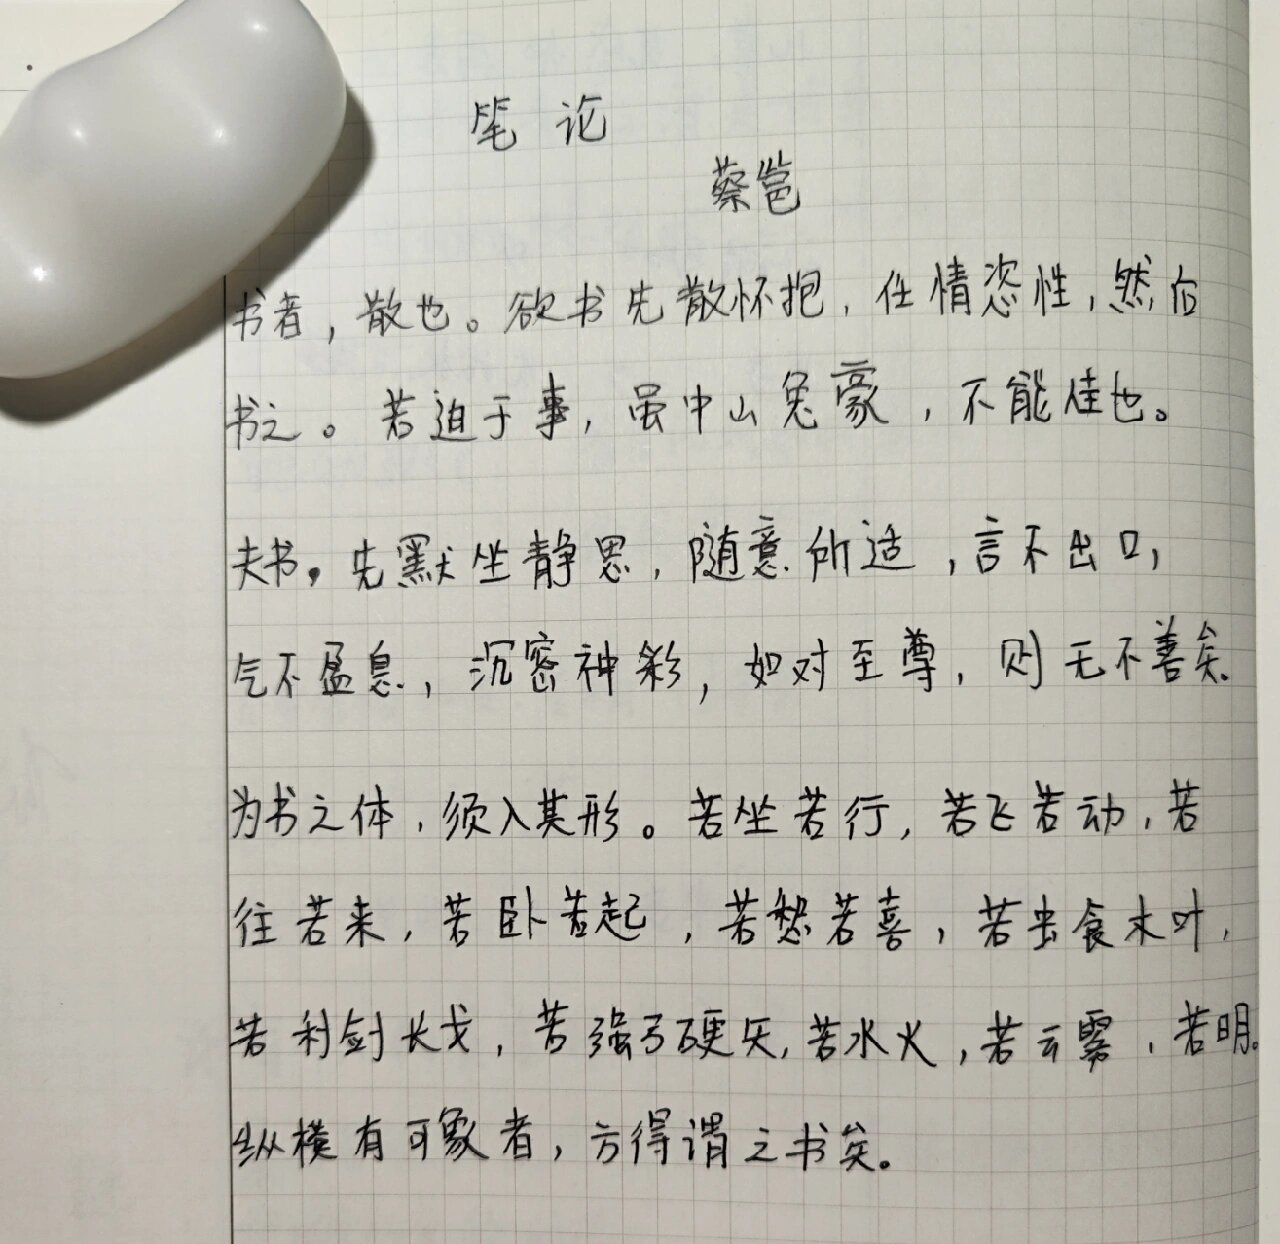 笔论
蔡邕
书者，散也。欲书先散怀抱，任情恣性，然后
书之。若迫于事，虽中山兔豪，不能佳也。
夫书，先默坐静思，随意所适，言不出口，
气不盈息，沉密神彩，如对至尊，则无不善矣。
为书之体，须入其形。若坐若行，若飞若动，若
往若来，若卧若起，若愁若喜，若虫食木叶，
若利剑长戈，若强弓硬矢，若水火，若云雾，若明。
纵横有可象者，方得谓之书矣。